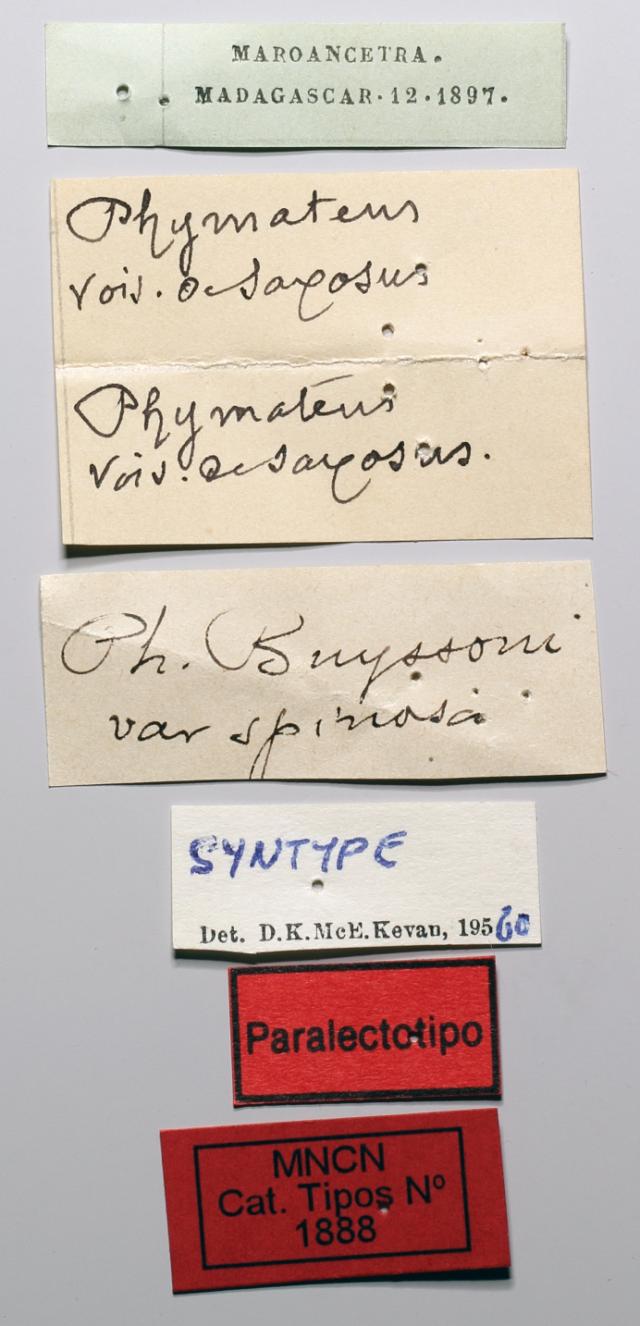 MAROANCETRA.
MADAGASCAR·12·1897.
Phymateus
vois. de saxosus
Phymatéus
vois. de saxosus.
Ph. Buyssoni
var spinosa
SYNTYPE
Det. D.K.McE.Kevan, 1956 60
Paralectotipo
MNCN
Cat. Tipos Nº
1888